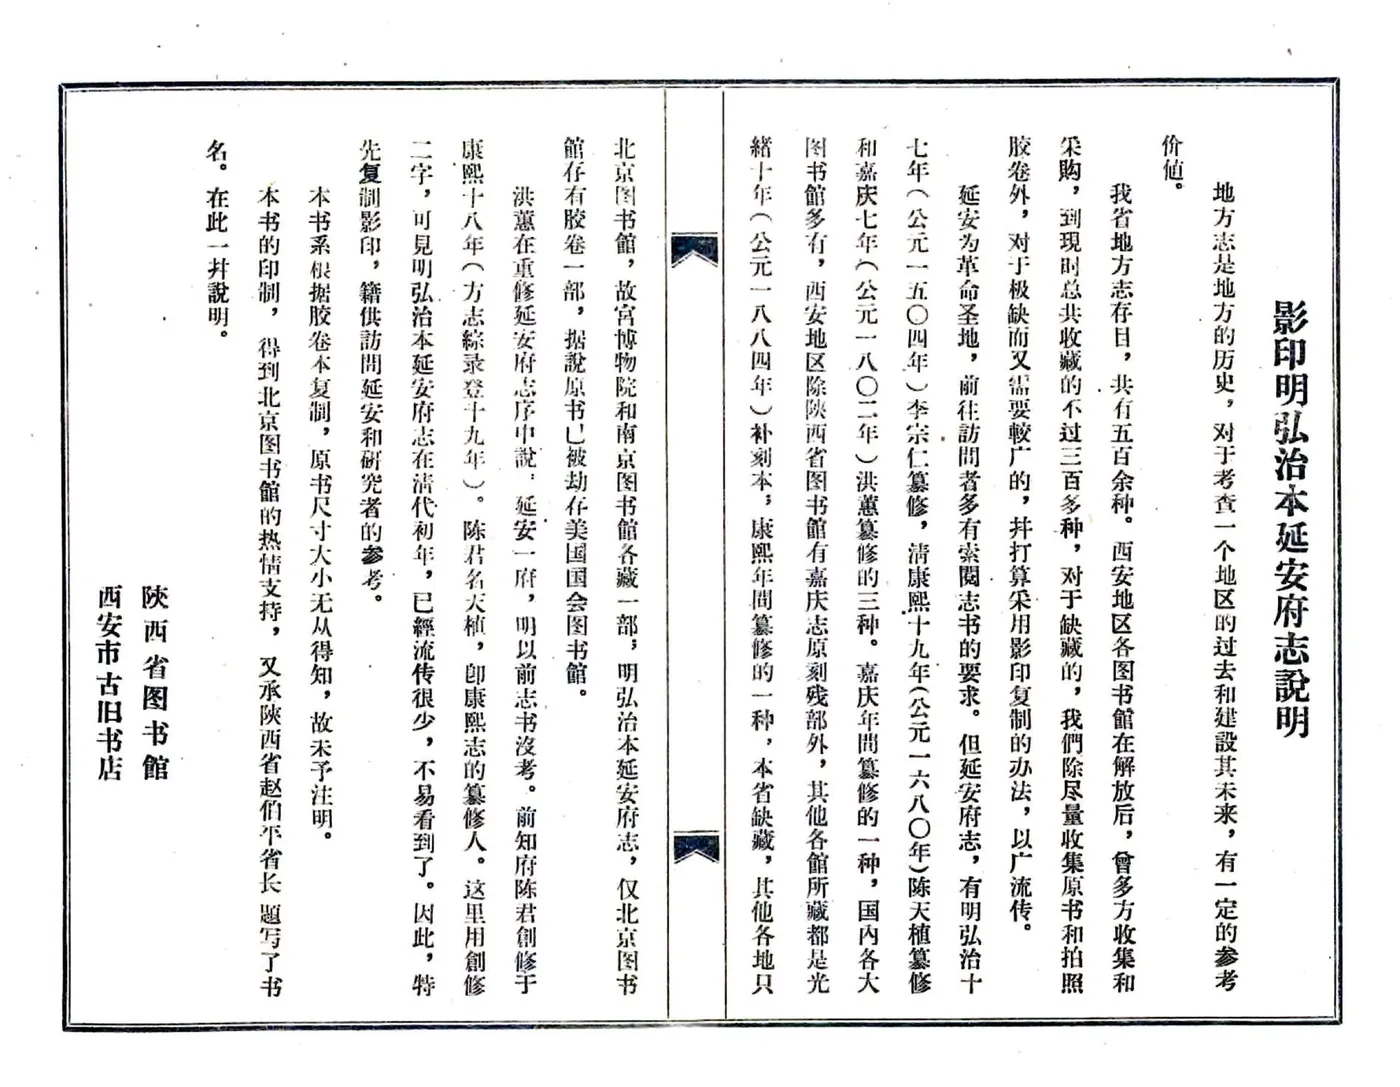 影印明弘治本延安府志說明
地方志是地方的历史，对于考查一个地区的过去和建設其未来，有一定的参考
价値。
我省地方志存目，共有五百余种。西安地区各图书館在解放后，曾多方收集和
采购，到现时总共收藏的不过三百多种，对于缺藏的，我們除尽量收集原书和拍照
胶卷外，对于极缺而又需要較广的，幷打算采用影印复制的办法，以广流传。
延安为革命圣地，前往訪問者多有索閱志书的要求。但延安府志，有明弘治十
七年（公元一五〇四年）李宗仁纂修，清康熙十九年（公元一六八〇年）陈天植纂修
和嘉庆七年（公元一八〇二年）洪蕙纂修的三种。嘉庆年間纂修的一种，国內各大
图书館多有，西安地区除陝西省图书館有嘉庆志原刻残部外，其他各館所藏都是光
緒十年（公元一八八四年）补刻本，康熙年間纂修的一种，本省缺藏，其他各地只
北京图书館，故宮博物院和南京图书館各藏一部；明弘治本延安府志，仅北京图书
館存有胶卷一部，据說原书已被劫存美国国会图书館。
洪蕙在重修延安府志序中說：延安一府，明以前志书沒考。前知府陈君創修于
康熙十八年（方志綜录登十九年）。陈君名天植，卽康熙志的纂修人。这里用創修
二字，可見明弘治本延安府志在清代初年，已經流传很少，不易看到了。因此，特
先复制影印，籍供訪問延安和研究者的参考。
本书系根据胶卷本复制，原书尺寸大小无从得知，故未予注明。
本书的印制，得到北京图书館的热情支持，又承陝西省赵伯平省长题写了书
名。在此一幷說明。
陝西省图书館
西安市古旧书店